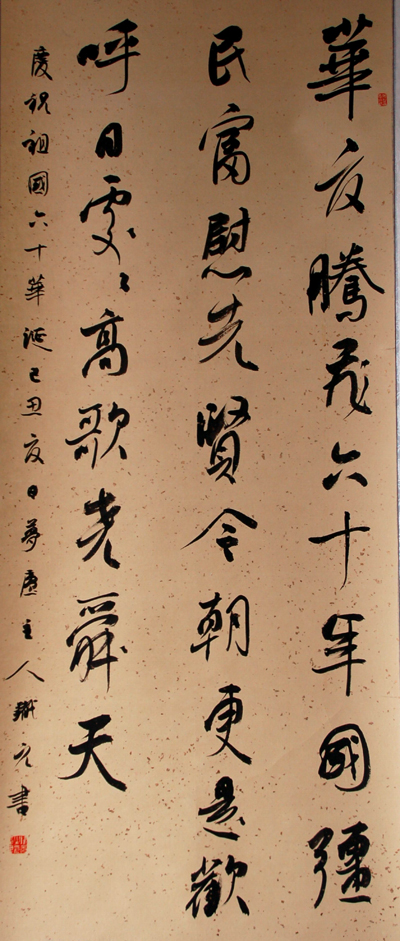 華夏騰飛六十年國彊
民富慰先賢今朝更是歡
呼日處々高歌堯舜天
慶祝祖國六十華誕己丑夏日夢廬主人書